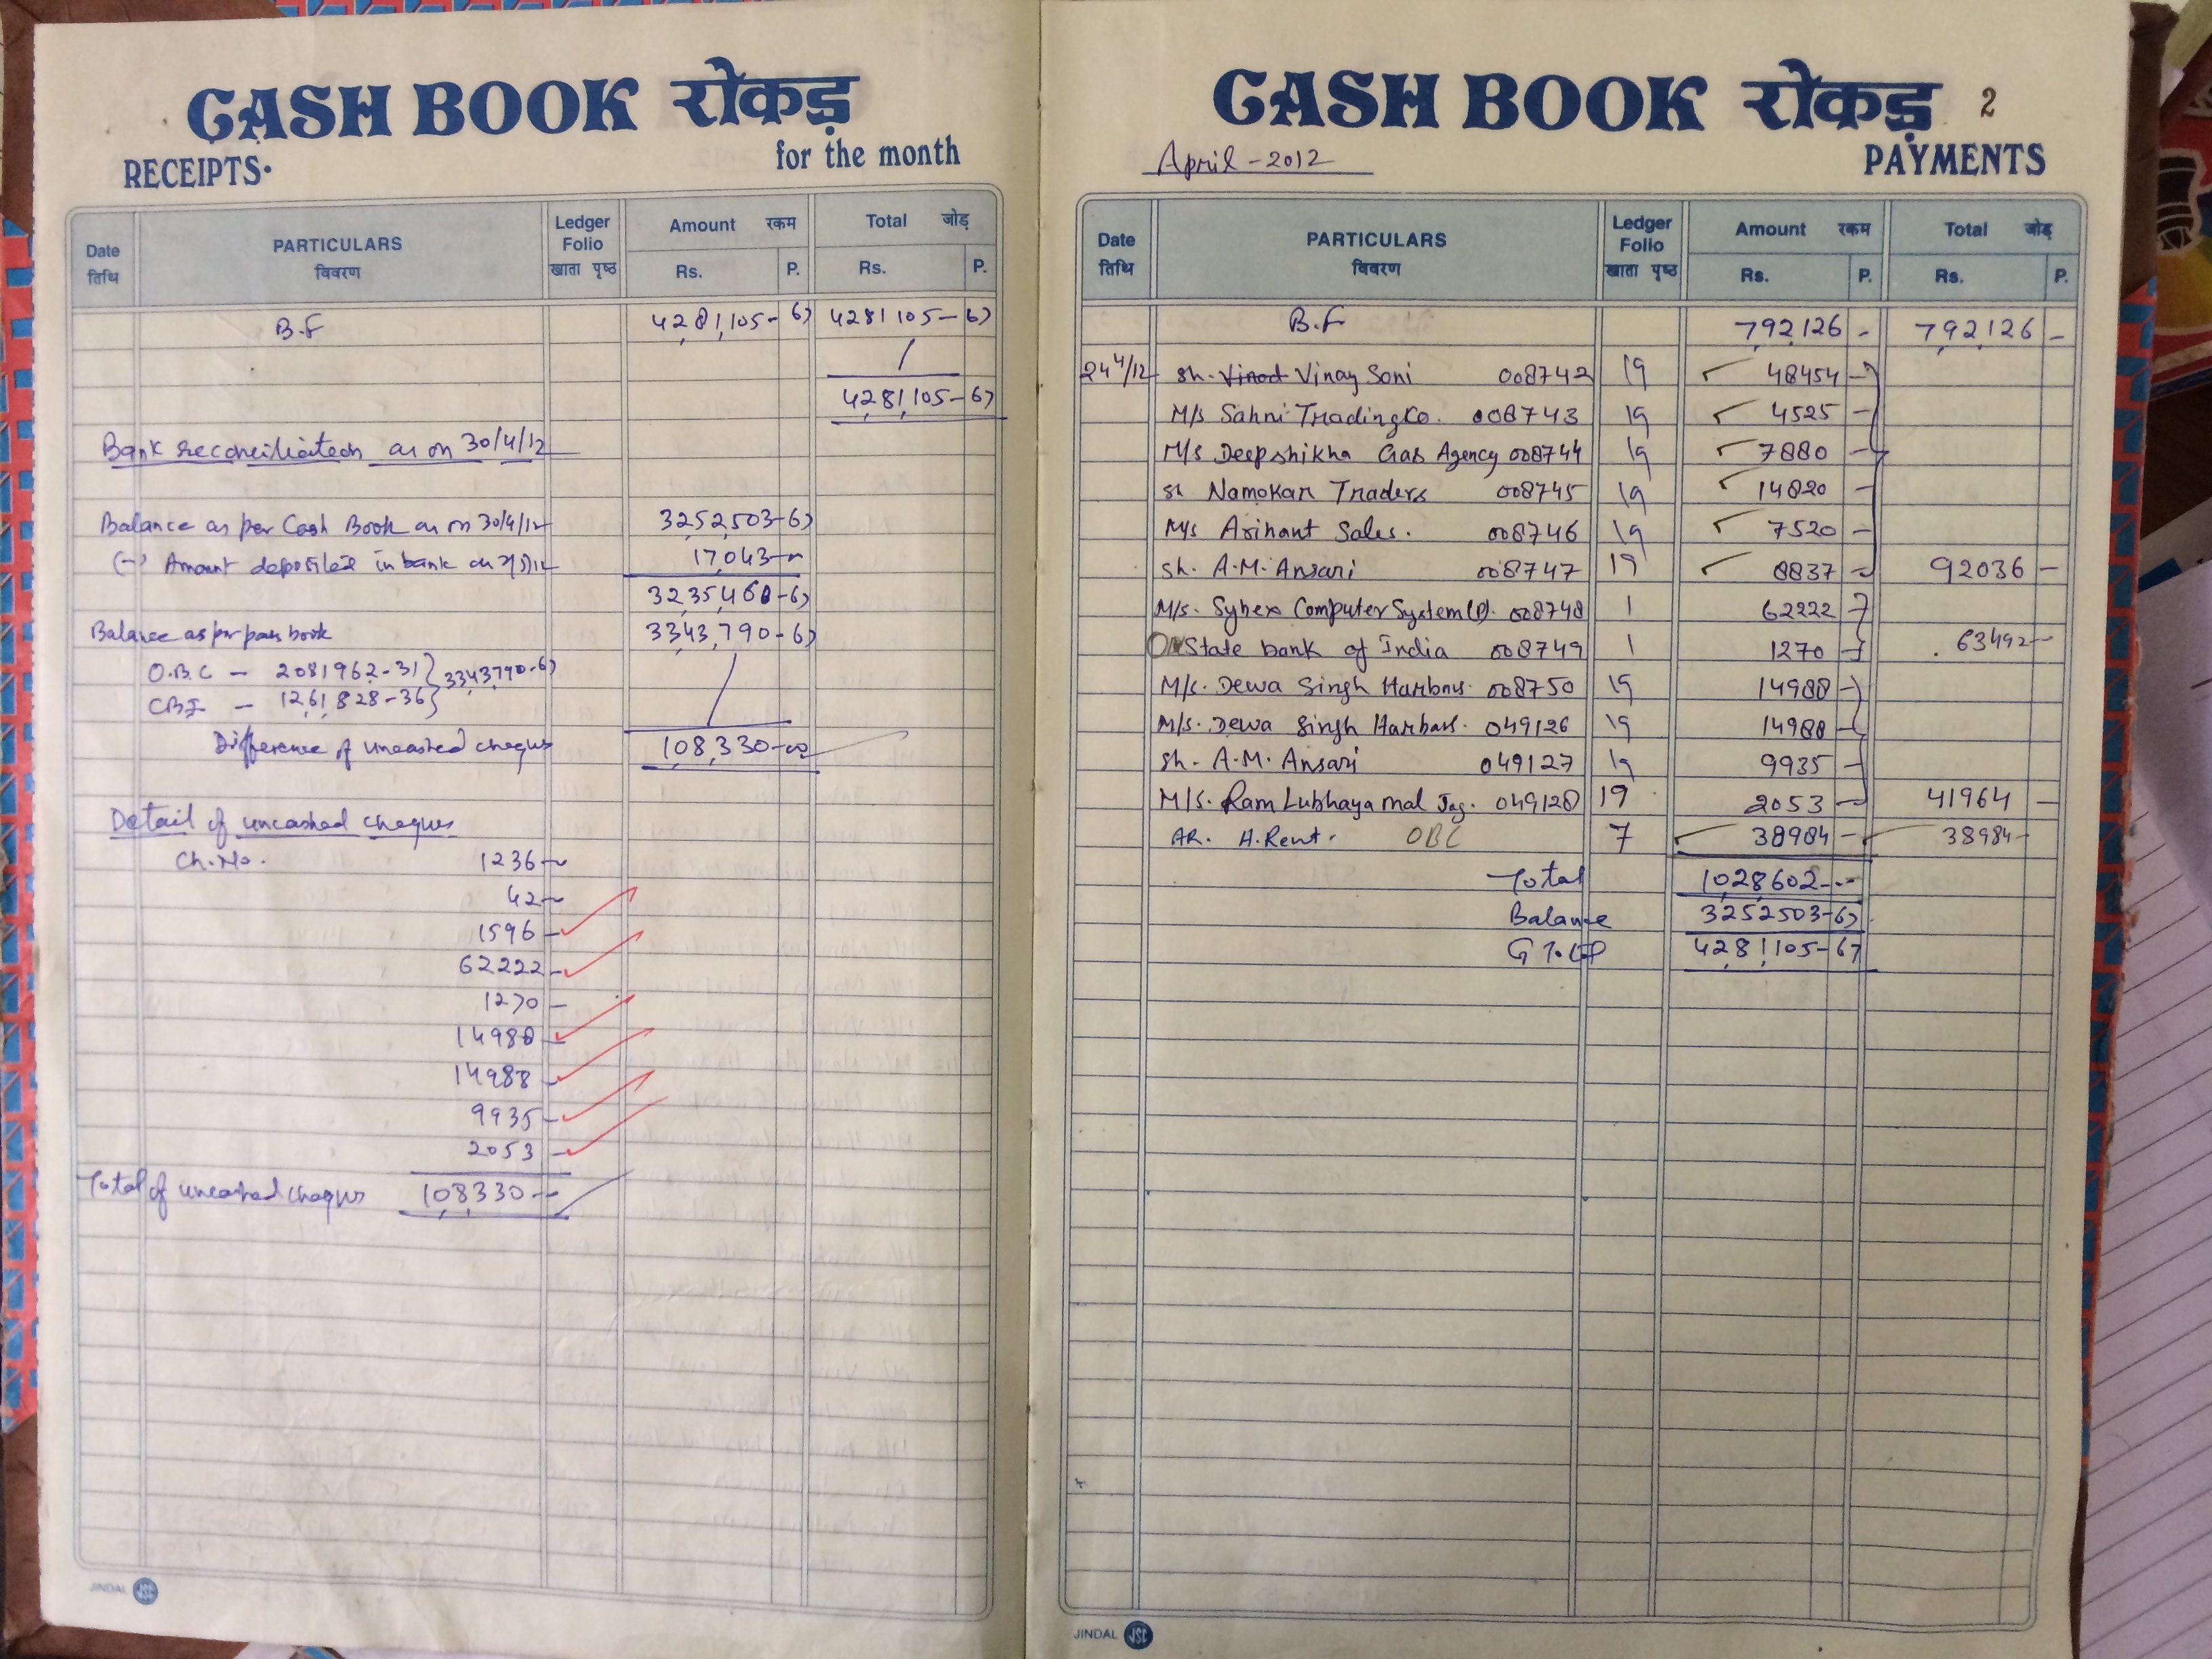 CASH BOOK रोकड़
RECEIPTS.
for the month
Date तिथि PARTICULARS विवरण Ledger Folio खाता पृष्ठ Amount रकम Rs. P. Total जोड़ Rs. P.
B.F 4281105-67 4281105-67
4281105-67
Bank Reconciliation as on 30/4/12
Balance as per Cash Book as on 30/4/12 3252503-67
(-) Amount deposited in bank on 17043-
3235460-67
Balance as per pass book 3343790-67
O.B.C - 2081962-31 } 3343790-67
CBI - 1261828-36 }
Difference of uncashed cheques 108330-00
Detail of uncashed cheques
Ch. No. 1236-
42-
1596-
62222-
1270-
14980-
14988-
9935-
2053-
Total of uncashed cheques 108330-
JINDAL
CASH BOOK रोकड़ 2
April-2012
PAYMENTS
Date तिथि PARTICULARS विवरण Ledger Folio खाता पृष्ठ Amount रकम Rs. P. Total जोड़ Rs. P.
B.F 792126- 792126-
24/4/12 Sh. Vinod Vinay Soni 008742 19 48454-
M/s Sahni Trading Co. 008743 19 4525-
M/s Deepshikha Gas Agency 008744 19 7880-
Sh Namokar Traders 008745 19 14820-
M/s Arihant Sales. 008746 19 7520-
Sh. A.M. Ansari 008747 19 8837- 92036-
M/s. Synex Computer System (P). 008748 1 62222-
State Bank of India 008749 1 1270- 63492-
M/s. Dewa Singh Harbans. 008750 19 14988-
M/s. Dewa Singh Harbans. 049126 19 14988-
Sh. A.M. Ansari 049127 19 9935-
M/s. Ram Lubhaya mal Jag. 049128 19 2053- 41964-
AR. H.Rent. OBC 7 38984- 38984-
Total 1028602-
Balance 3252503-67
G.Total 4281105-67
JINDAL